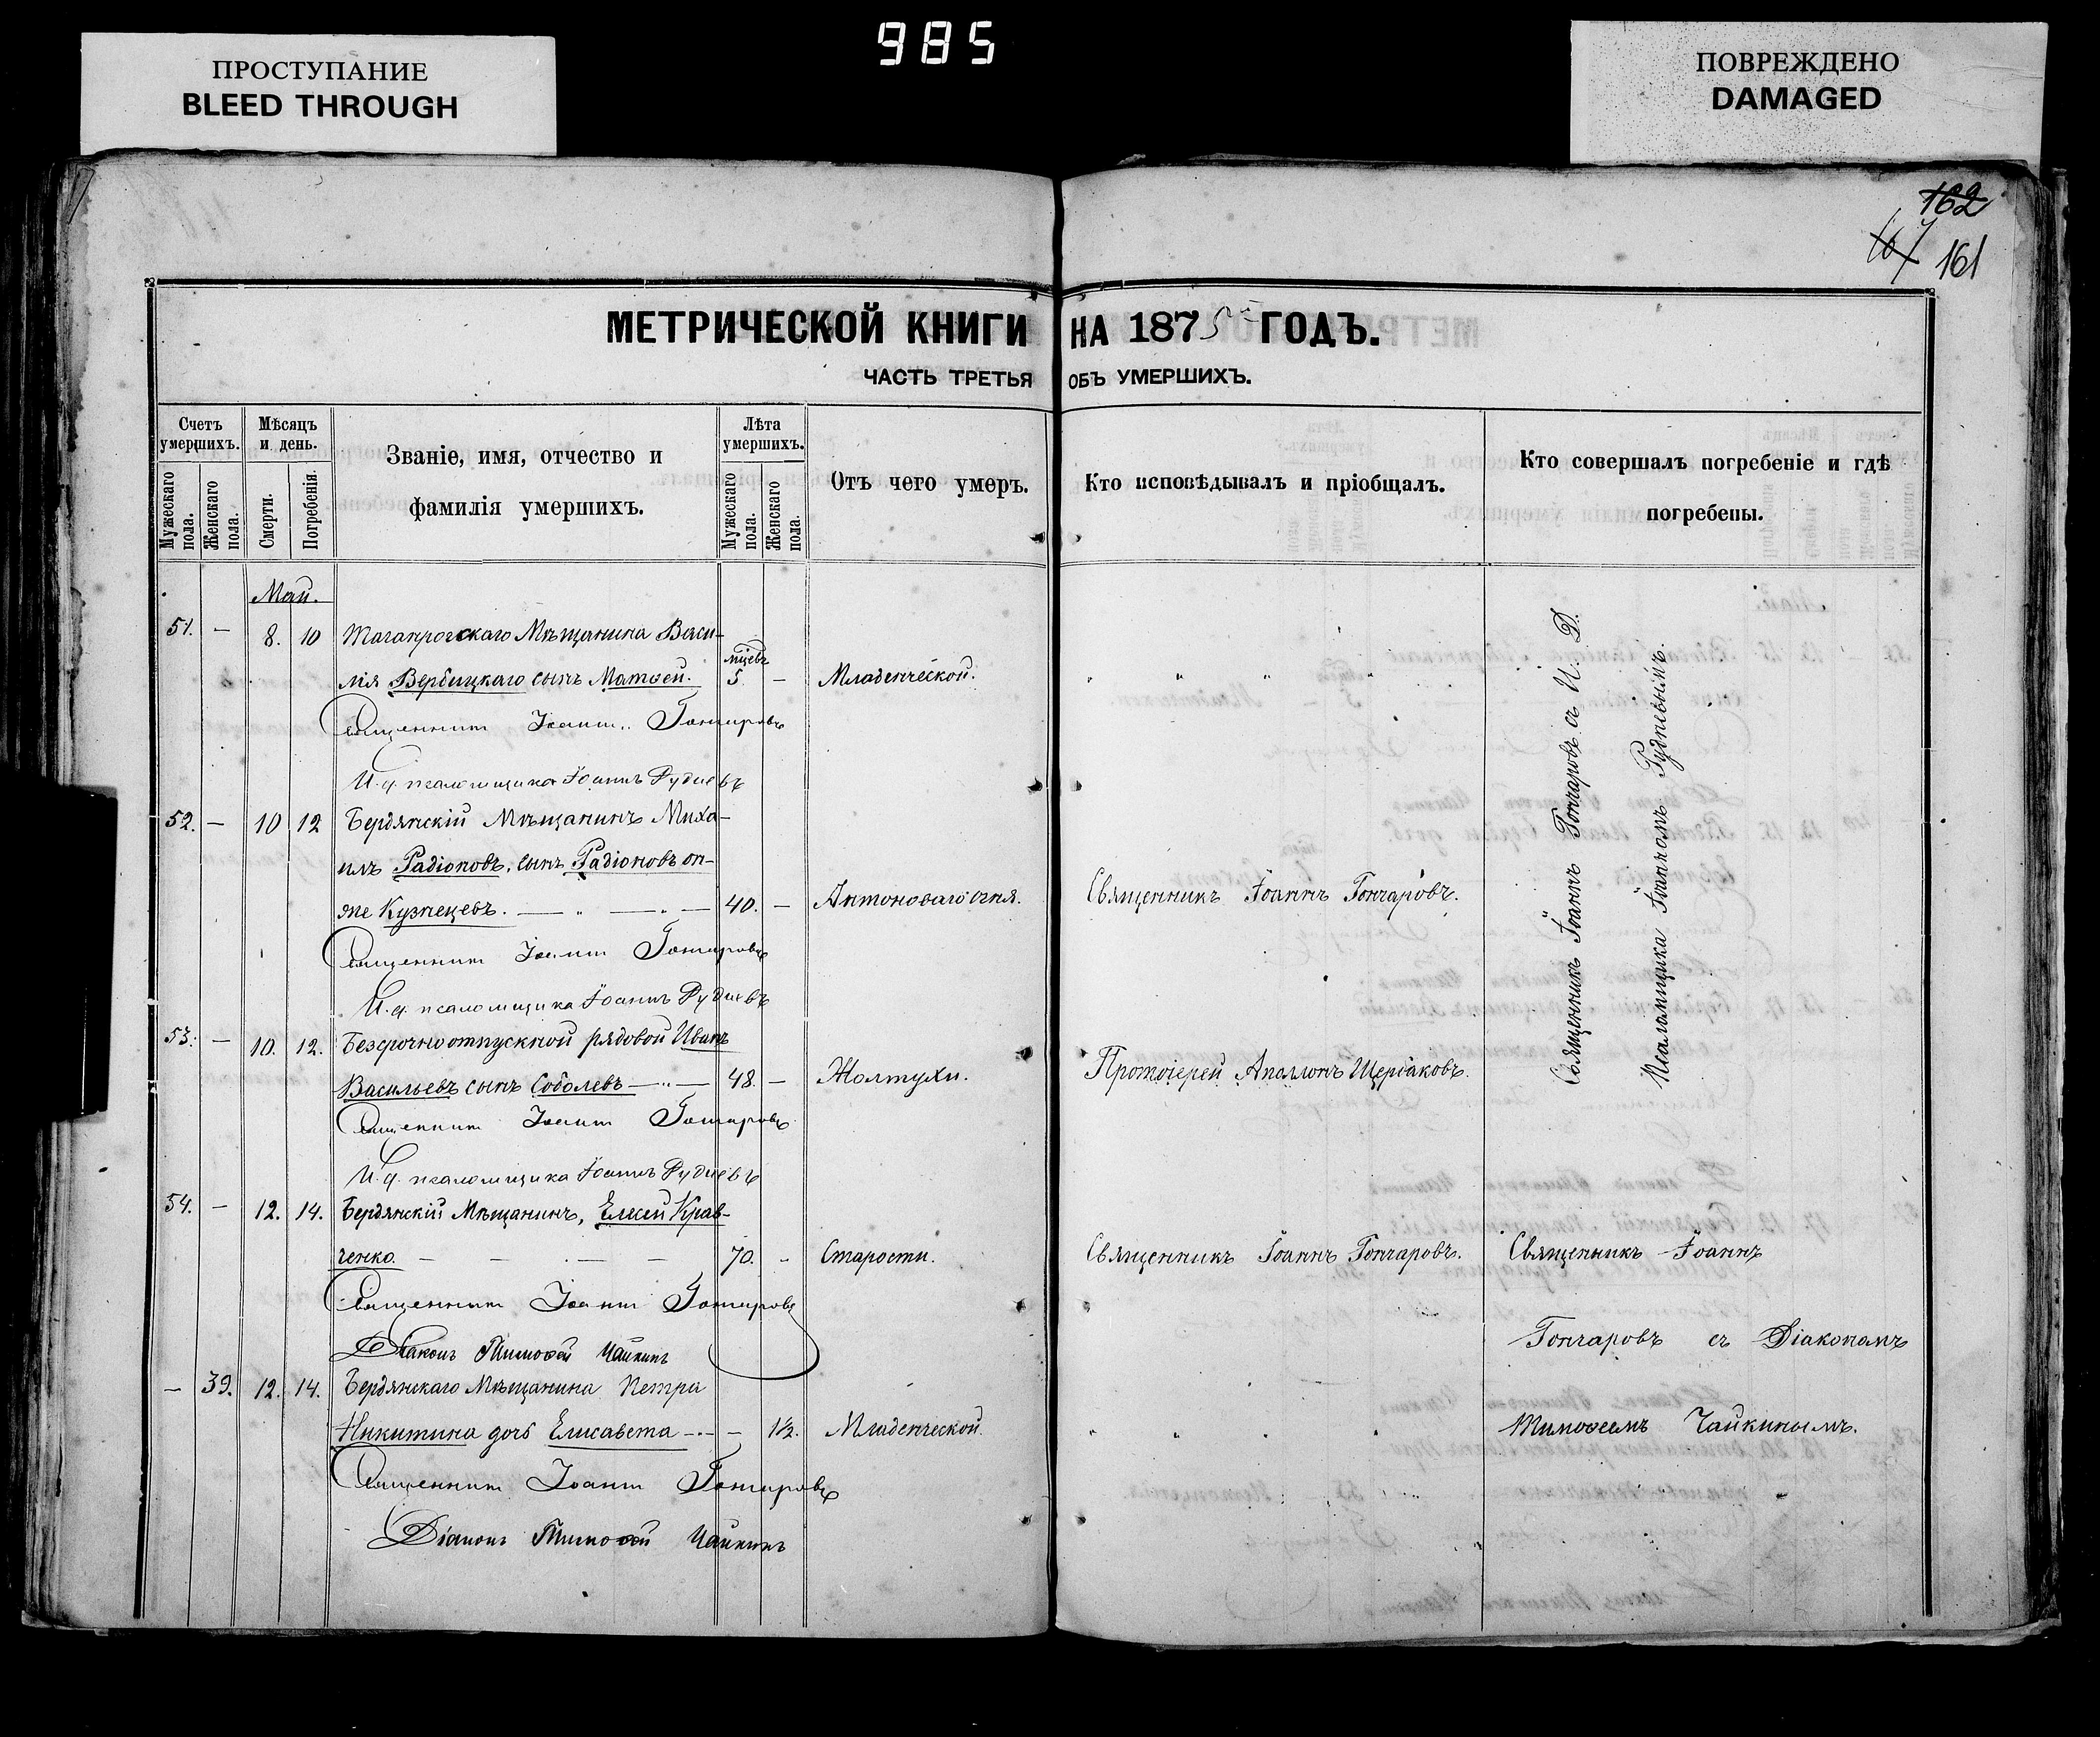 985
ПРОСТУПАНИЕ
BLEED THROUGH
ПОВРЕЖДЕНО
DAMAGED
162
167
161
МЕТРИЧЕСКОЙ КНИГИ НА 1875й ГОДЪ.
ЧАСТЬ ТРЕТЬЯ ОБЪ УМЕРШИХЪ.
Счетъ умершихъ.
Мужескаго пола.
Женскаго пола.
Мѣсяцъ и день.
Смерти.
Погребенія.
Званіе, имя, отчество и
фамилія умершихъ.
Лѣта умершихъ.
Мужескаго пола.
Женскаго пола.
Отъ чего умеръ.
Кто исповѣдывалъ и пріобщалъ.
Кто совершалъ погребеніе и гдѣ
погребены.
Май.
51. — 8. 10 Таганрогскаго Мѣщанина Васи-
лія Вербицкаго сынъ Матѳей. мцевъ 5. — Младенческой. " " " "
Священникъ Іоаннъ Гончаровъ
И. д. псаломщика Іоаннъ Рудневъ
52. — 10 12 Бердянскій Мѣщанинъ Миха-
илъ Радіоновъ, сынъ Радіоновъ он-
же Кузнецевъ. — " — " — 40. — Антоноваго огня. Священникъ Іоаннъ Гончаровъ.
Священникъ Іоаннъ Гончаровъ
И. д. псаломщика Іоаннъ Рудневъ
53. — 10. 12. Безсрочноотпускной рядовой Иванъ
Васильевъ сынъ Соболевъ — " — 48. — Жолтухи. Протоіерей Аполлонъ Щербаковъ.
Священникъ Іоаннъ Гончаровъ
И. д. псаломщика Іоаннъ Рудневъ
Священникъ Іоаннъ Гончаровъ съ И. Д.
Псаломщика Іоанномъ Рудневымъ.
54. — 12. 14. Бердянскій Мѣщанинъ, Елисей Крав-
ченко. — — . — — 70. - Старости. Священникъ Іоаннъ Гончаровъ. Священникъ Іоаннъ
Священникъ Іоаннъ Гончаровъ
Гончаровъ съ Діакономъ
Діаконъ Тимоѳей Чайкинъ
— 39. 12. 14. Бердянскаго Мѣщанина Петра
Никитина дочь Елисавета - · - — 1½. Младенческой. " " " " Тимоѳеемъ Чайкинымъ.
Священникъ Іоаннъ Гончаровъ
Діаконъ Тимоѳей Чайкинъ